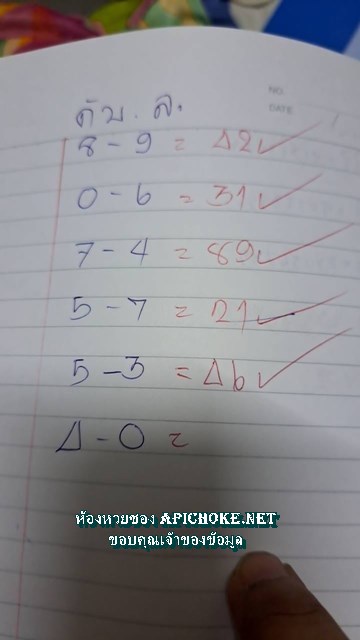 NO.
DATE
ดับ. ล.
8 - 9 = 42 ✓
0 - 6 = 31 ✓
7 - 4 = 89 ✓
5 - 7 = 21 ✓
5 - 3 = 46 ✓
4 - 0 =
ห้องหวยซอง APICHOKE.NET
ขอบคุณเจ้าของข้อมูล